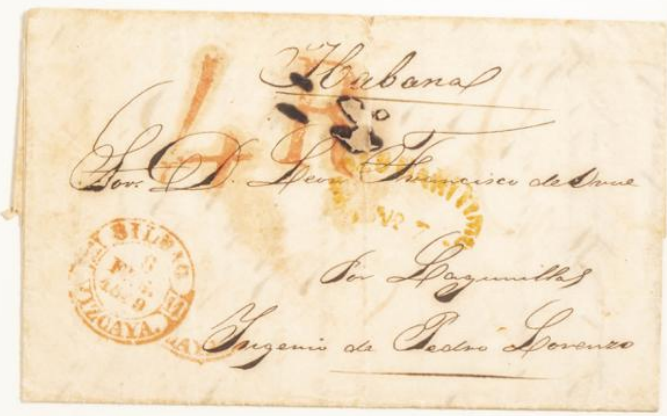 Habana
4 R
Sor. D. Leon Francisco de Orue
BILBAO
6
FEB.
1849
VIZCAYA.
Por Lagunillas
Ingenio de Pedro Lorenzo